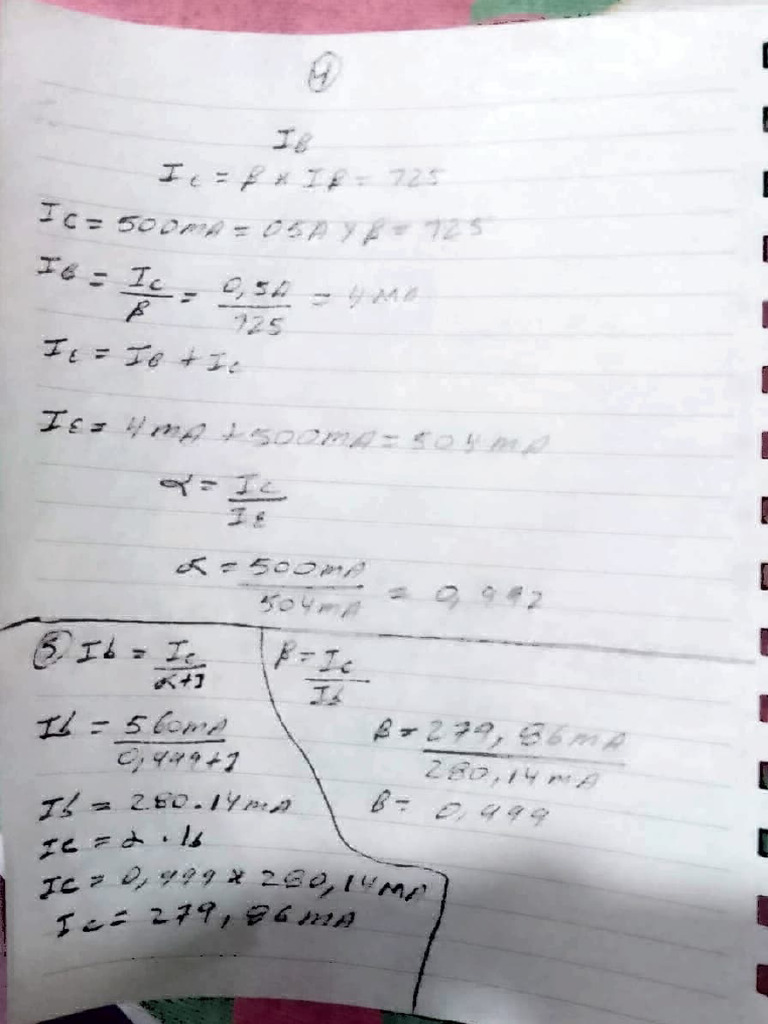 4
IB
Ic = β x IB = 125
Ic = 500mA = 05A y β = 125
IB = Ic/β = 0,5A/125 = 4mA
IE = IB + Ic
IE = 4mA + 500mA = 504mA
α = Ic/IE
α = 500mA/504mA = 0,992
5 Ib = Ic/α+1
Ib = 560mA/0,999+1
Ib = 280.14mA
Ic = α . Ib
Ic = 0,999 x 280,14mA
Ic = 279,86mA
β = Ic/Ib
β = 279,86mA/280,14mA
β = 0,999